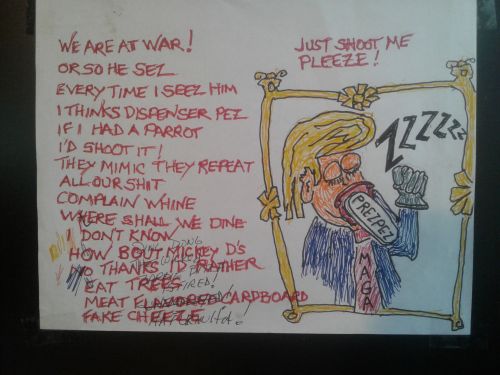 WE ARE AT WAR!
OR SO HE SEZ
EVERY TIME I SEEZ HIM
I THINKS DISPENSER PEZ
IF I HAD A PARROT
I'D SHOOT IT!
THEY MIMIC THEY REPEAT
ALL OUR SHIT
COMPLAIN WHINE
WHERE SHALL WE DINE
I DON'T KNOW
HOW BOUT MICKEY D'S
NO THANKS I'D RATHER
EAT TREES
MEAT FLAVORED CARDBOARD
FAKE CHEEZE
DING DONG
FIRED!
JUST SHOOT ME
PLEEZE!
ZZZZZZ
PREZPEZ
MAGA